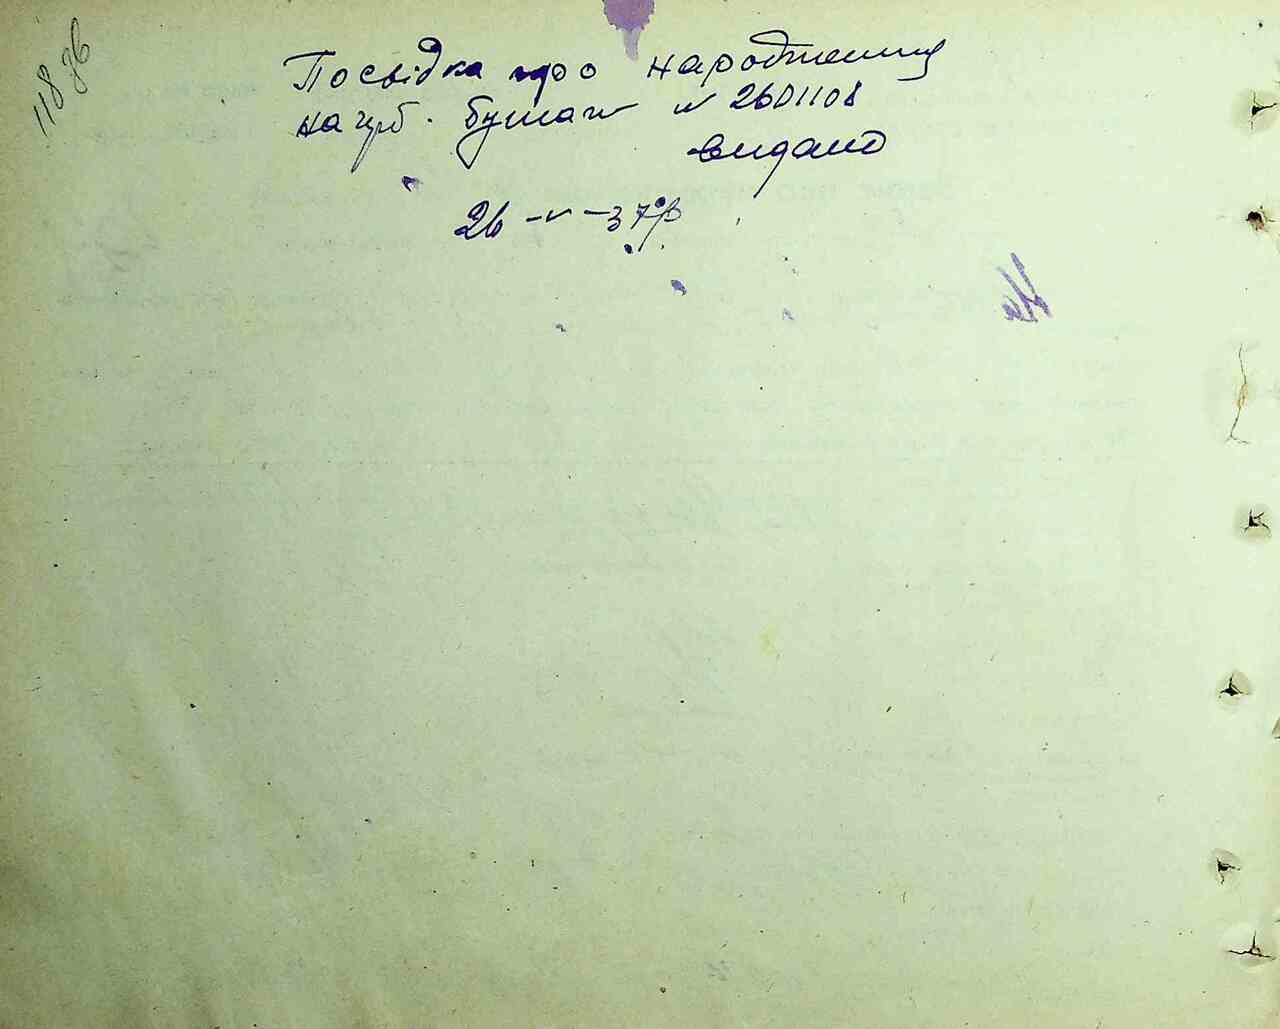 118 зв
Посвідка про народження
на герб. бумазі № 2601108
видано
26-V-37р.